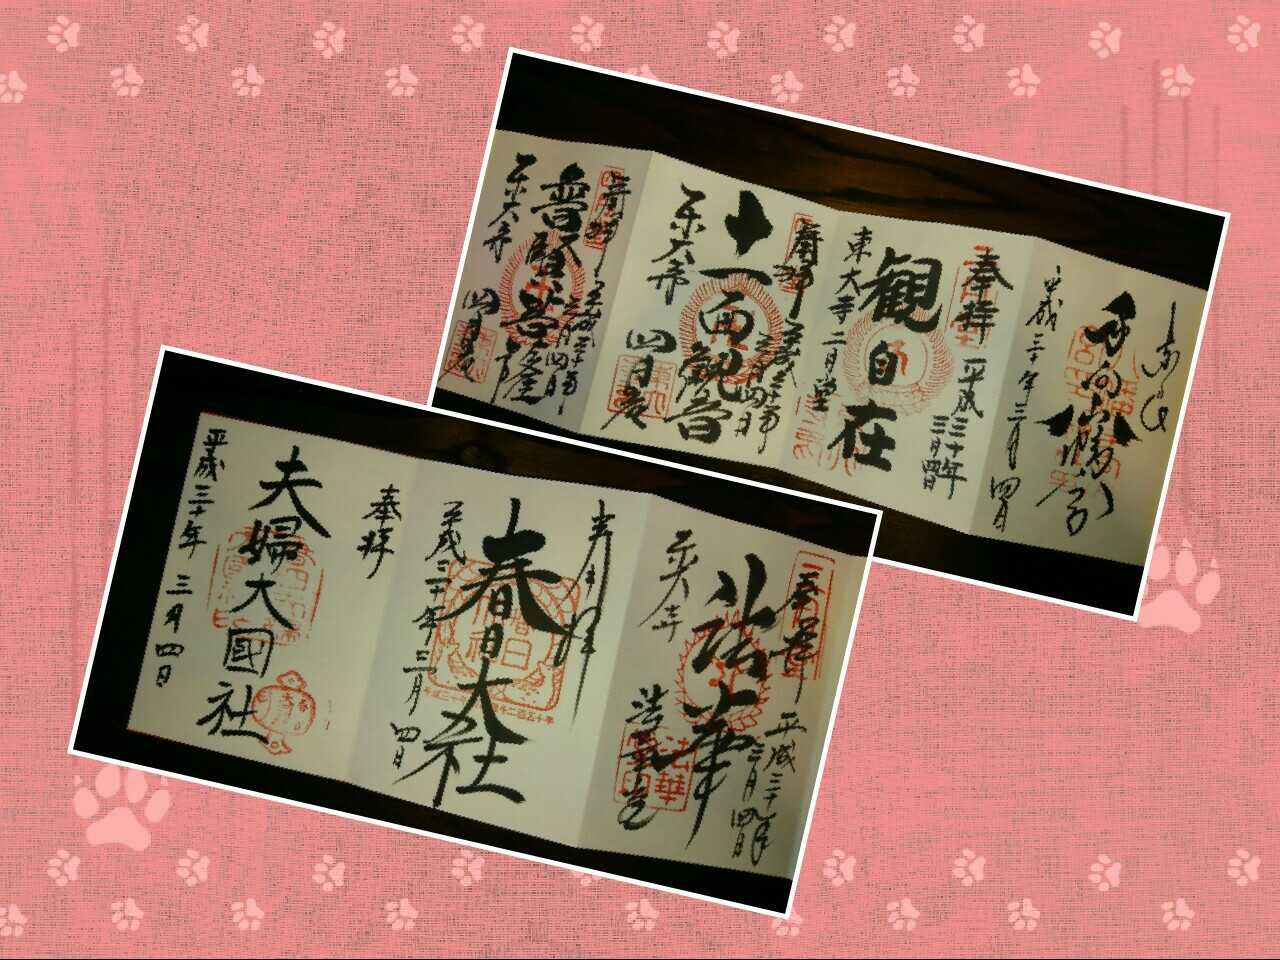 奉拝
平成三十年
三月四日
普賢菩薩
東大寺
四月堂
奉拝
平成三十年
三月四日
十一面観音
東大寺
四月堂
奉拝
平成三十年
三月四日
観自在
東大寺二月堂
手向山八幡宮
平成三十年三月四日
奉拝
平成三十年
三月四日
法華
東大寺
法華堂
奉拝
春日大社
平成三十年三月四日
奉拝
夫婦大國社
平成三十年三月四日